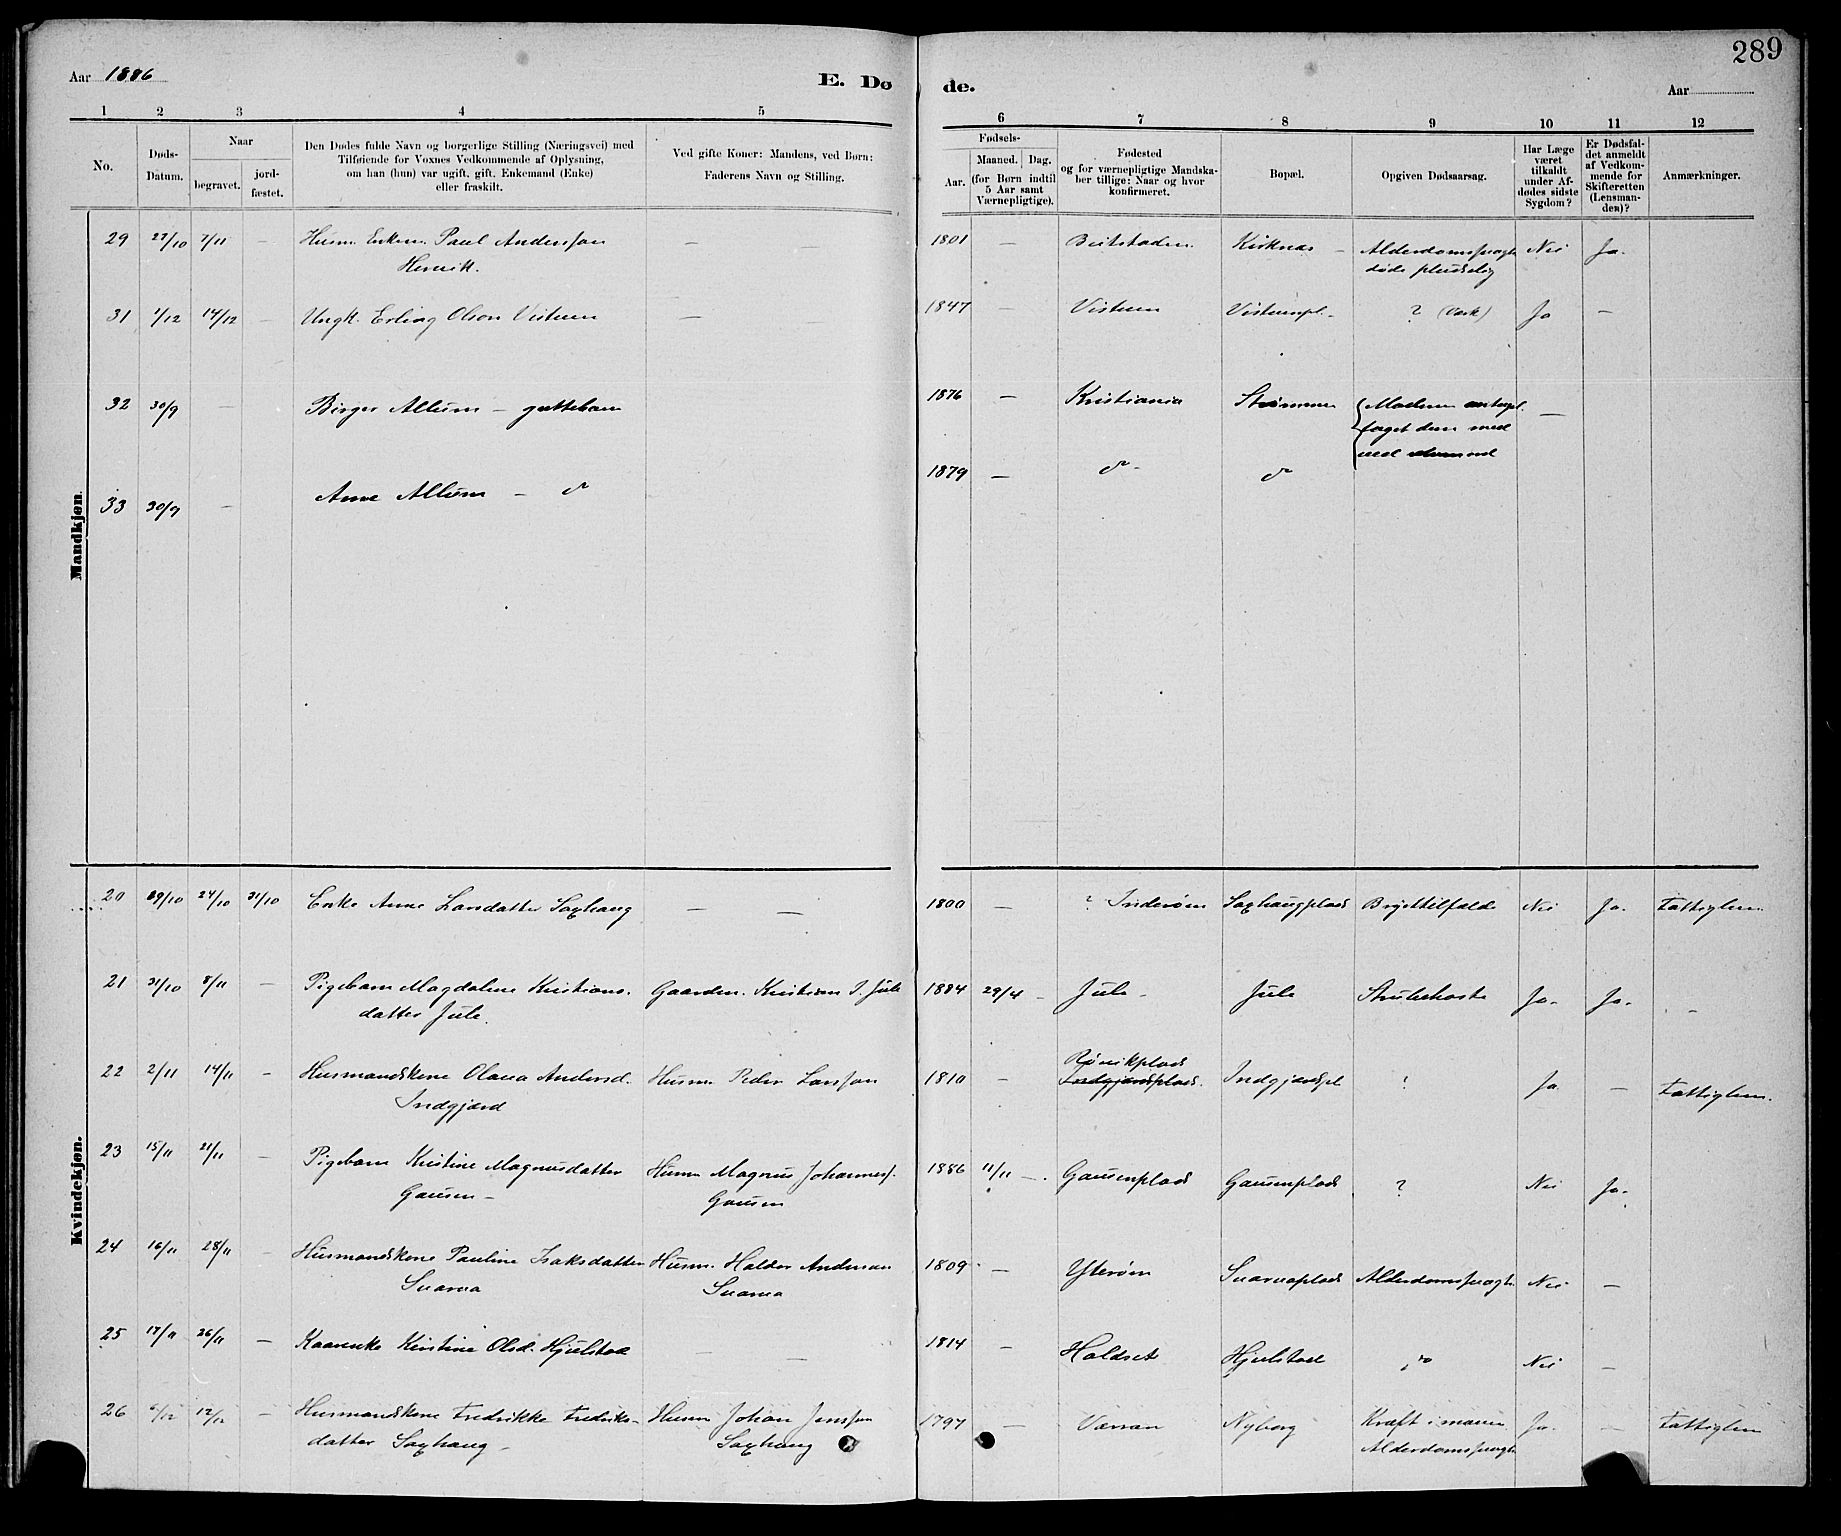 289
Aar 1886
E. Dø
de.
Aar
1 2 3 4 5 6 7 8 9 10 11 12
No.
Døds-
Datum.
Naar
begravet.
jord-
fæstet.
Den Dødes fulde Navn og borgerlige Stilling (Næringsvei) med
Tilføiende for Voxnes Vedkommende af Oplysning,
om han (hun) var ugift, gift, Enkemand (Enke)
eller fraskilt.
Ved gifte Koner: Mandens, ved Børn:
Faderens Navn og Stilling.
Fødsels-
Aar.
Maaned. Dag.
(for Børn indtil
5 Aar samt
Værnepligtige).
Fødested
og for værnepligtige Mandska-
ber tillige: Naar og hvor
konfirmeret.
Bopæl.
Opgiven Dødsaarsag.
Har Læge
været
tilkaldt
under Af-
dødes sidste
Sygdom?
Er Dødsfal-
det anmeldt
af Vedkom-
mende for
Skifteretten
(Lensman-
den)?
Anmærkninger.
Mandkjøn.
29 27/10 7/11 — Husm. Enkem. Paul Anderssen — — 1801 — Beitstaden Kirknæs — Alderdomssvagh. Nei Ja.
Henrik. døde pludselig
31 1/12 14/12 — Ungk. Erling Olson Vistven — — 1847 — Vistven Vistvenpl. ? (Værk) Ja —
32 30/9 — Birger Allum — guttebarn 1876 — Kristiania Strømmen Moderen
taget dem med
ned
33 30/9 — Arne Allum — do 1879 — do do
Kvindekjøn.
20 29/10 24/10 31/10 Enke Anne Larsdatter Saxhaug — — 1800 — ? Inderøen Saxhaugplads Brysttilfælde Nei Ja. Fattiglem.
21 31/10 8/11 — Pigebarn Magdalene Kristians- Gaardm. Kristian J. Jule 1884 29/4 — Jule Jule Strubehoste Ja. Ja. —
datter Jule.
Røvikplads
22 2/11 14/11 — Husmandskone Olava Andersd. Husm Peder Larsson 1810 — Indgjærdplads. Indgjærdspl ? Ja — Fattiglem.
Indgjærd
23 15/11 21/11 — Pigebarn Kristine Magnusdatter Husm Magnus Johannes. 1886 11/11 — Gausenplads Gausenplads ? Nei Ja.
Gausen — Gausen
24 16/11 28/11 — Husmandskone Pauline Isaksdatter Husm. Haldor Andersen 1809 — Yterøen Suarvaplads Alderdomssvagh. Nei —
25 17/11 26/11 — Kaarenke Kristine Olsd. Hjulstad — — 1814 — Holdset Hjulstad do Nei —
26 6/12 12/12 — Husmandskone Fredrikke Fredriks- Husm Johan Jensson 1797 — Værran Nyborg Kræft i maven Ja. — Fattiglem
datter Saxhaug — Saxhaug Alderdomssvagh.